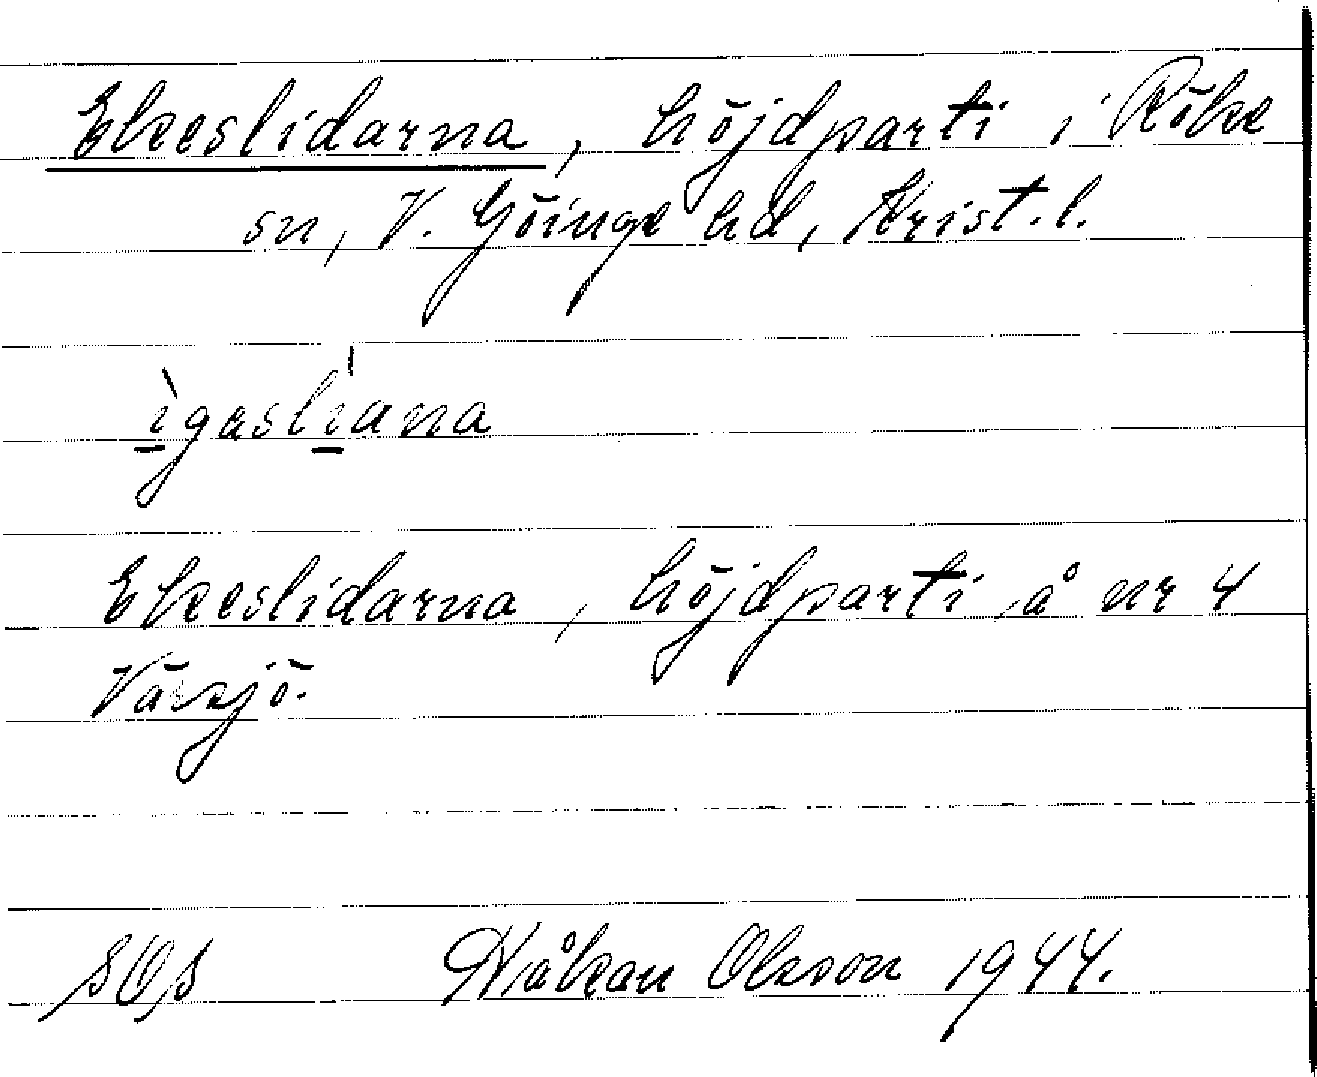 Ekeslidarna, höjdparti i Röke
sn, V. Göinge hd, Krist. l.
ìgaslíana
Ekeslidarna, höjdparti å nr 4
Värsjö.
Håkan Olsson 1944.